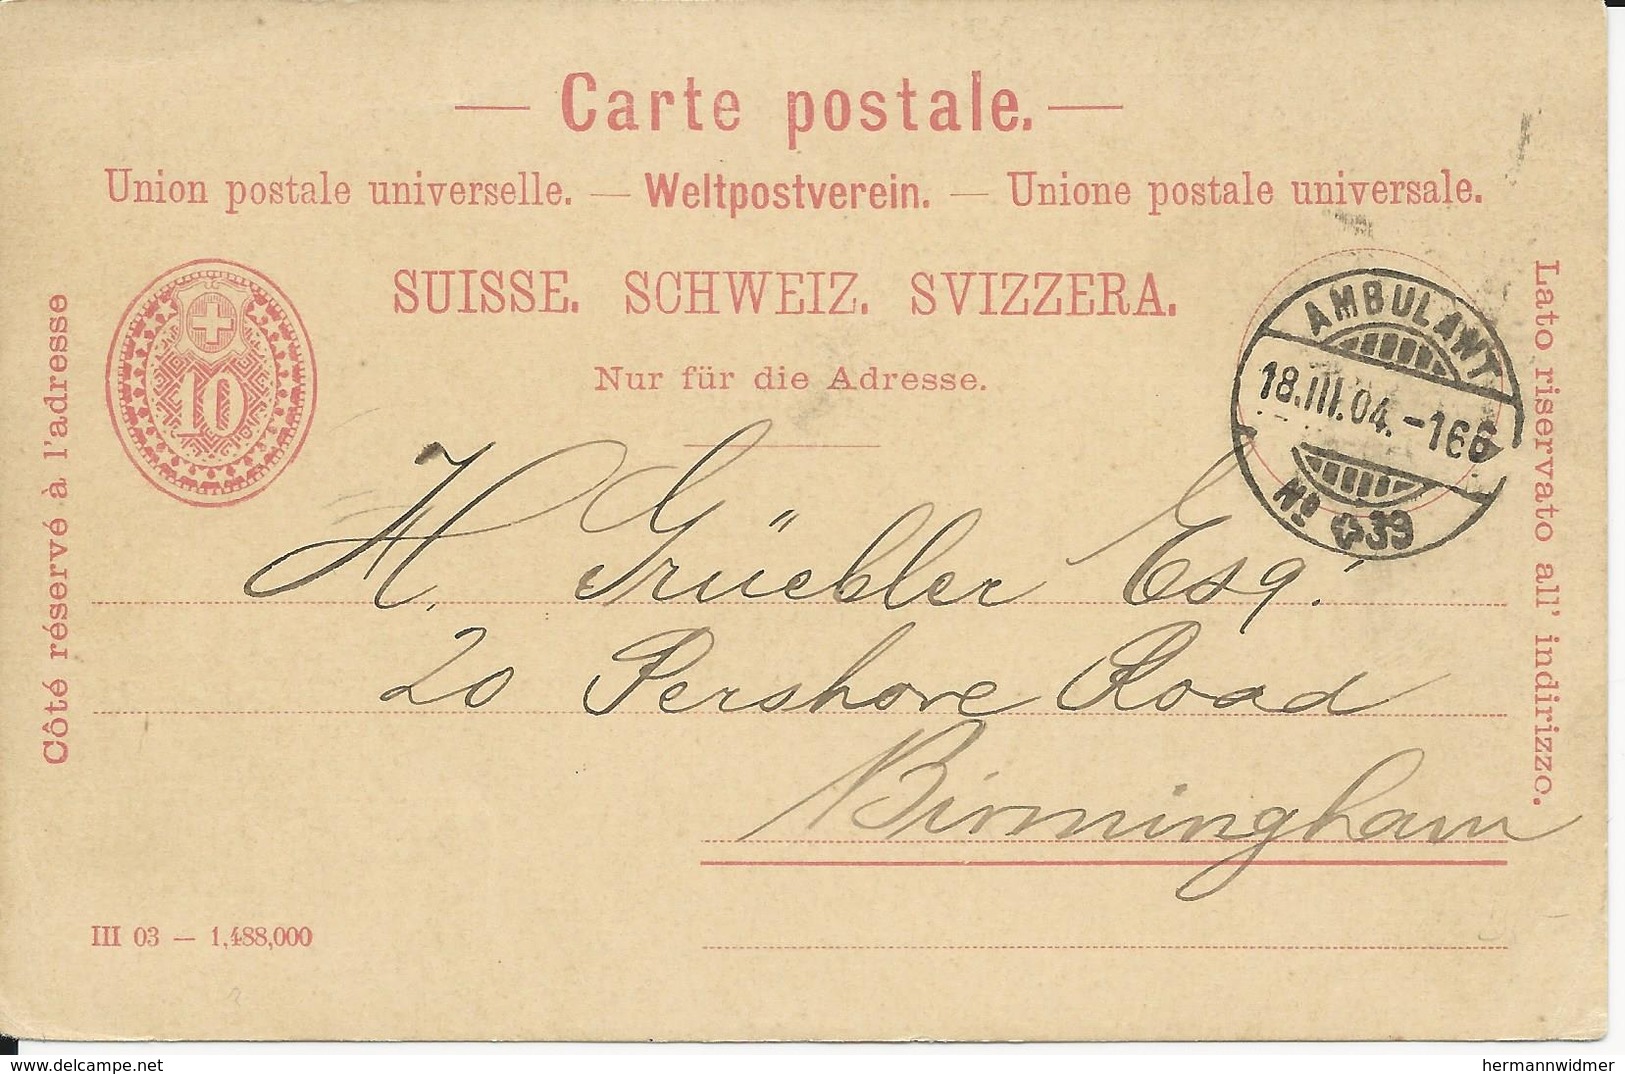 Carte postale.
Union postale universelle. — Weltpostverein. — Unione postale universale.
SUISSE. SCHWEIZ. SVIZZERA.
Nur für die Adresse.
Côté réservé à l'adresse
Lato riservato all' indirizzo.
10
AMBULANT
18.III.04.-166
No 39
H. Grüebler Esq.
20 Pershore Road
Birmingham
III 03 — 1,488,000
delcampe.net
hermannwidmer